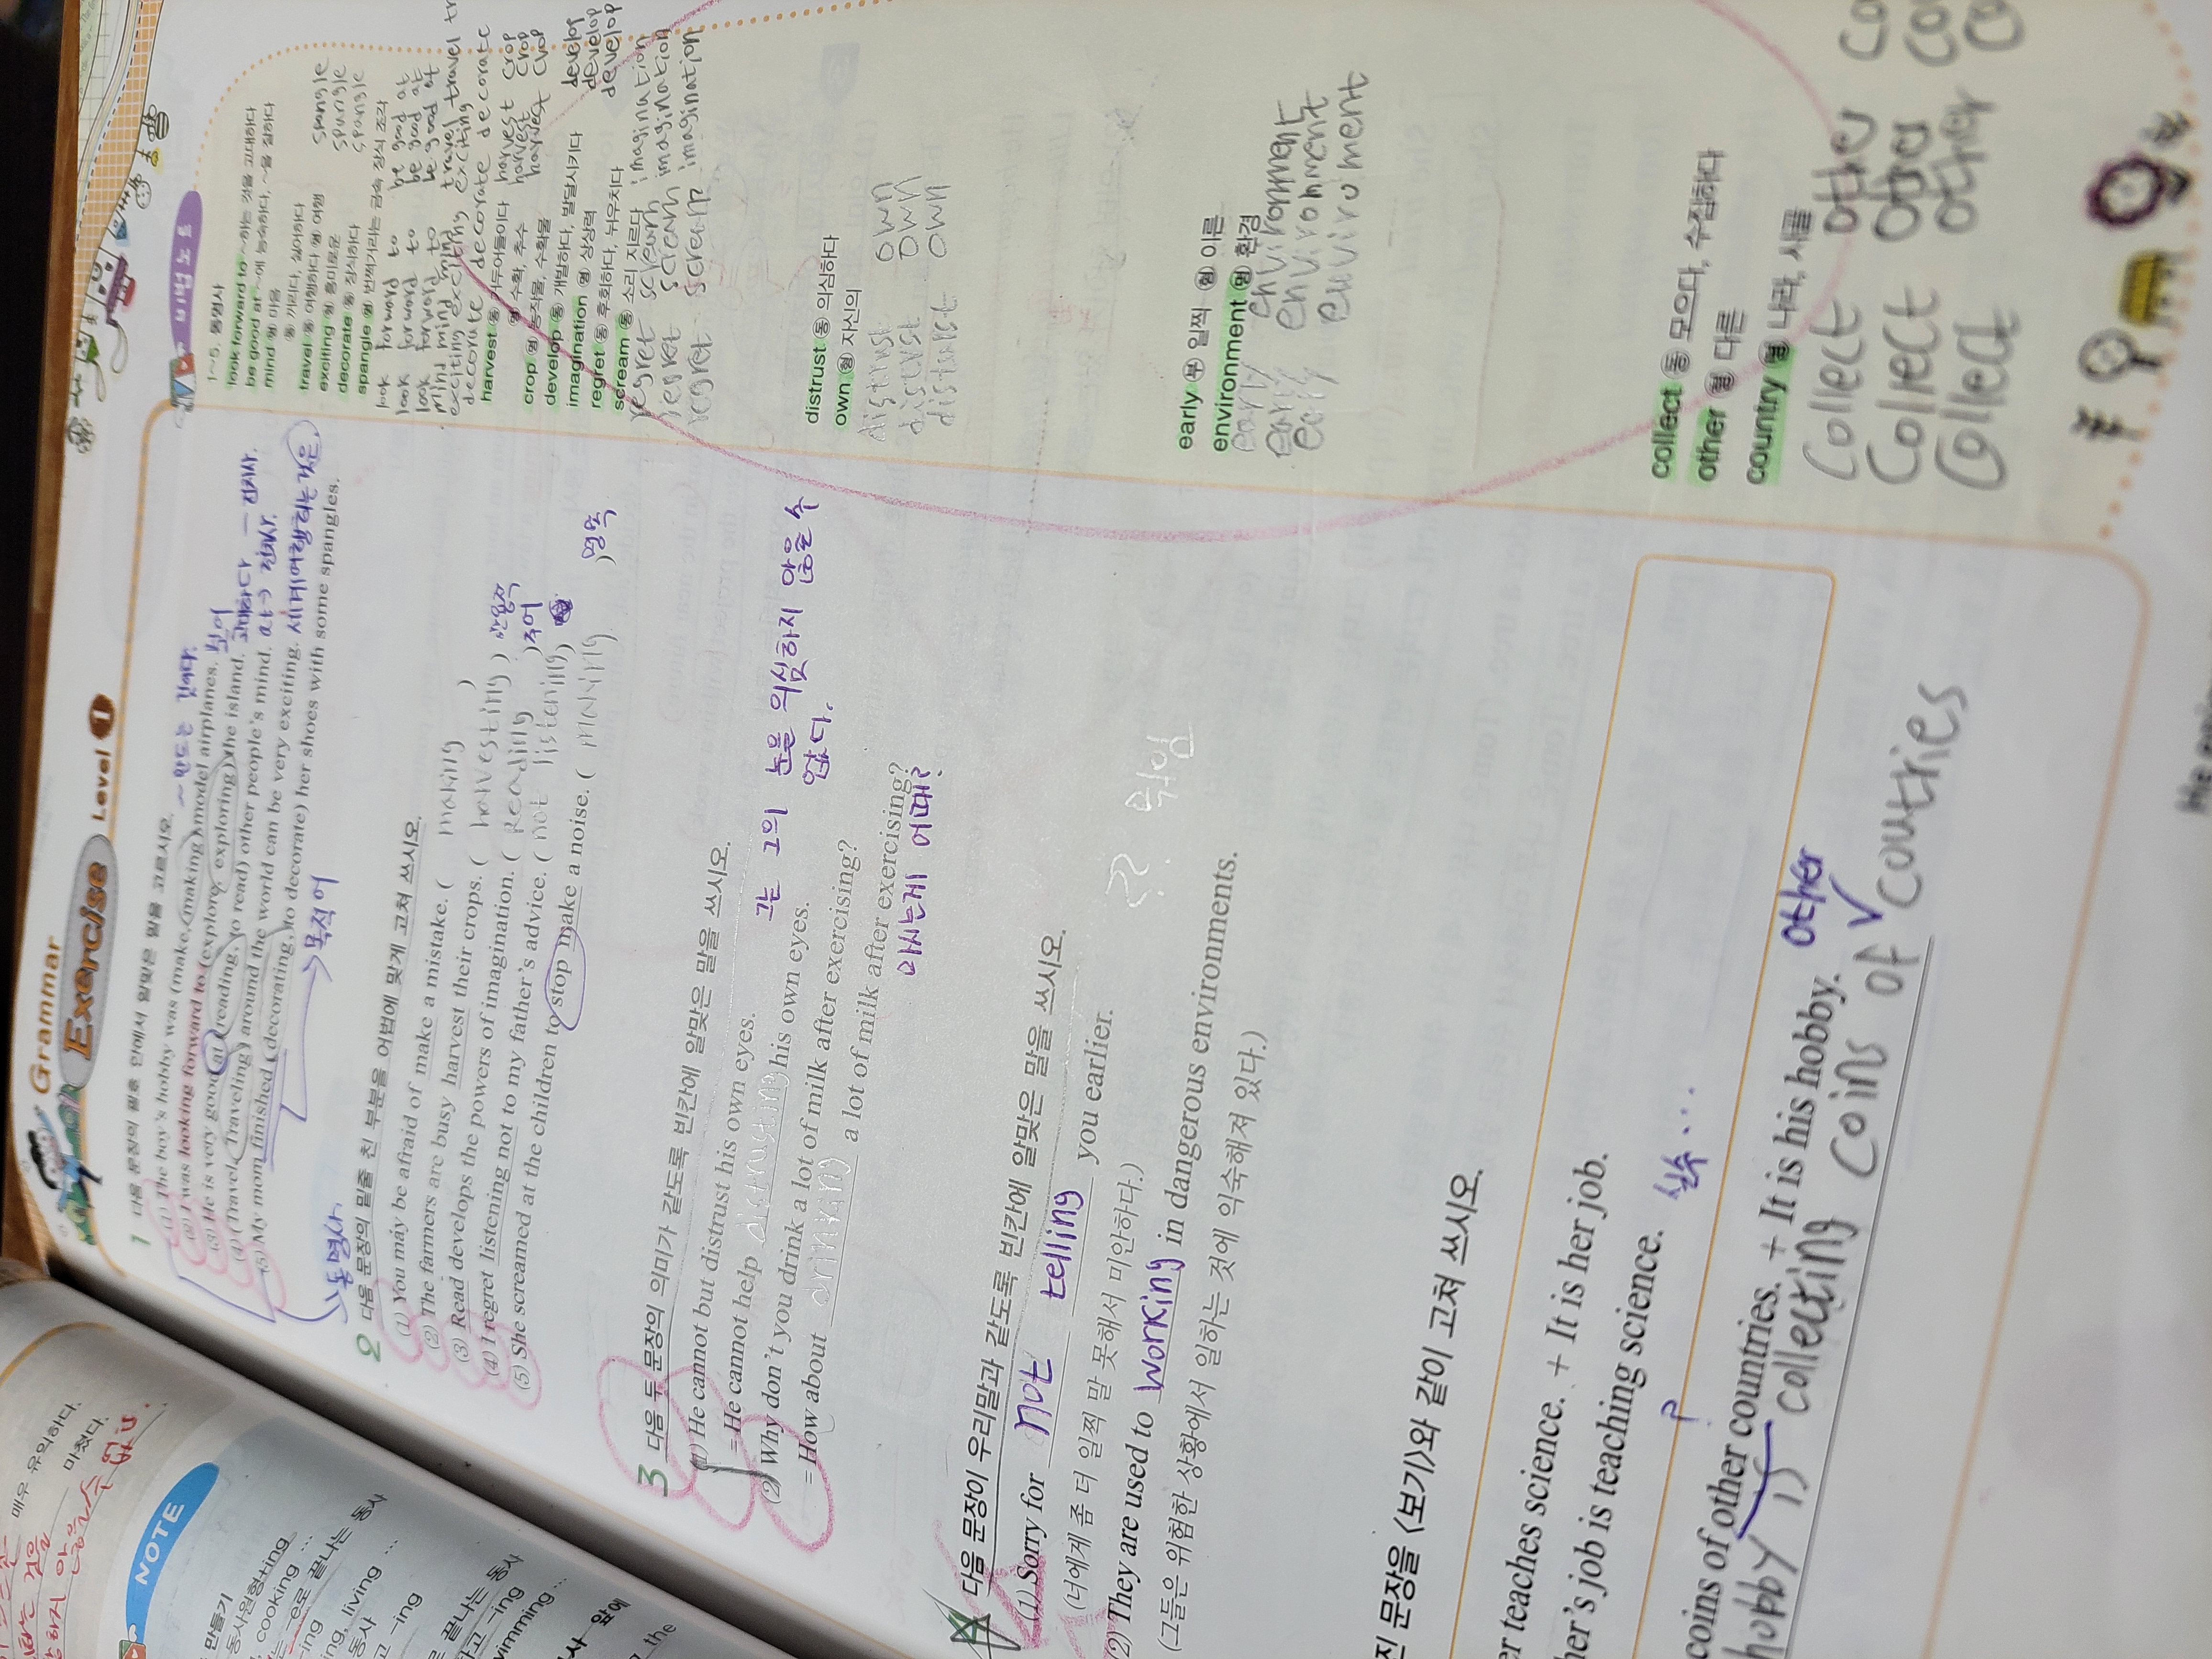 Grammar
Exercise Level 1
1 다음 문장의 괄호 안에서 알맞은 말을 고르시오.
(1) The boy's hobby was (make, making) model airplanes.
~ 만드는 것이다.
보어
(2) I was looking forward to (explore, exploring) the island.
고대하다 - 전치사.
(3) He is very good at (reading, to read) other people's mind.
at → 전치사.
(4) (Travel, Traveling) around the world can be very exciting.
(5) My mom finished (decorating, to decorate) her shoes with some spangles.
목적어
동명사
2 다음 문장의 밑줄 친 부분을 어법에 맞게 고쳐 쓰시오.
(1) You may be afraid of make a mistake. ( making )
(2) The farmers are busy harvest their crops. ( harvesting )
(3) Read develops the powers of imagination. ( Reading ) 주어
(4) I regret listening not to my father's advice. ( not listening )
(5) She screamed at the children to stop make a noise. ( making )
3 다음 두 문장의 의미가 같도록 빈칸에 알맞은 말을 쓰시오.
(1) He cannot but distrust his own eyes.
= He cannot help distrusting his own eyes.
그는 그의 눈을 의심하지 않을 수
없다.
(2) Why don't you drink a lot of milk after exercising?
= How about drinking a lot of milk after exercising?
마시는게 어때?
다음 문장이 우리말과 같도록 빈칸에 알맞은 말을 쓰시오.
(1) Sorry for not telling you earlier.
(너에게 좀 더 일찍 말 못해서 미안하다.)
(2) They are used to working in dangerous environments.
(그들은 위험한 상황에서 일하는 것에 익숙해져 있다.)
진 문장을 〈보기〉와 같이 고쳐 쓰시오.
er teaches science. + It is her job.
her's job is teaching science.
실수...
coins of other countries. + It is his hobby.
other
hobby is collecting coins of countries
비법 노트
1~5. 동명사
look forward to ~하는 것을 고대하다
be good at ~에 능숙하다, ~을 잘하다
mind 명 마음
동 꺼리다, 싫어하다
travel 동 여행하다 명 여행
exciting 형 흥미로운
decorate 동 장식하다
spangle 명 번쩍거리는 금속 장식 조각
spangle
spangle
spangle
look forward to be good at
look forward to be good at
look forward to be good at
mind mind mind travel travel
exciting exciting exciting
decorate decorate decorate decorate
harvest 동 거두어들이다
명 수확, 추수
crop 명 농작물, 수확물
harvest crop
harvest crop
harvest crop
develop 동 개발하다, 발달시키다
develop
develop
develop
imagination 명 상상력
regret 동 후회하다, 뉘우치다
scream 동 소리 지르다
regret scream imagination
regret scream imagination
regret scream imagination
distrust 동 의심하다
own 형 자신의
distrust own
distrust own
distrust own
early 부 일찍 형 이른
environment 명 환경
early environment
early environment
early environment
collect 동 모으다, 수집하다
other 형 다른
country 명 나라, 시골
collect other
collect other
collect other
NOTE
매우 유의하다.
마쳤다.
만들기
동사원형+ing
cooking ...
-e로 끝나는 동사
-ing
living ...
동사
-ing
로 끝나는 동사
-ing
wimming ...
the